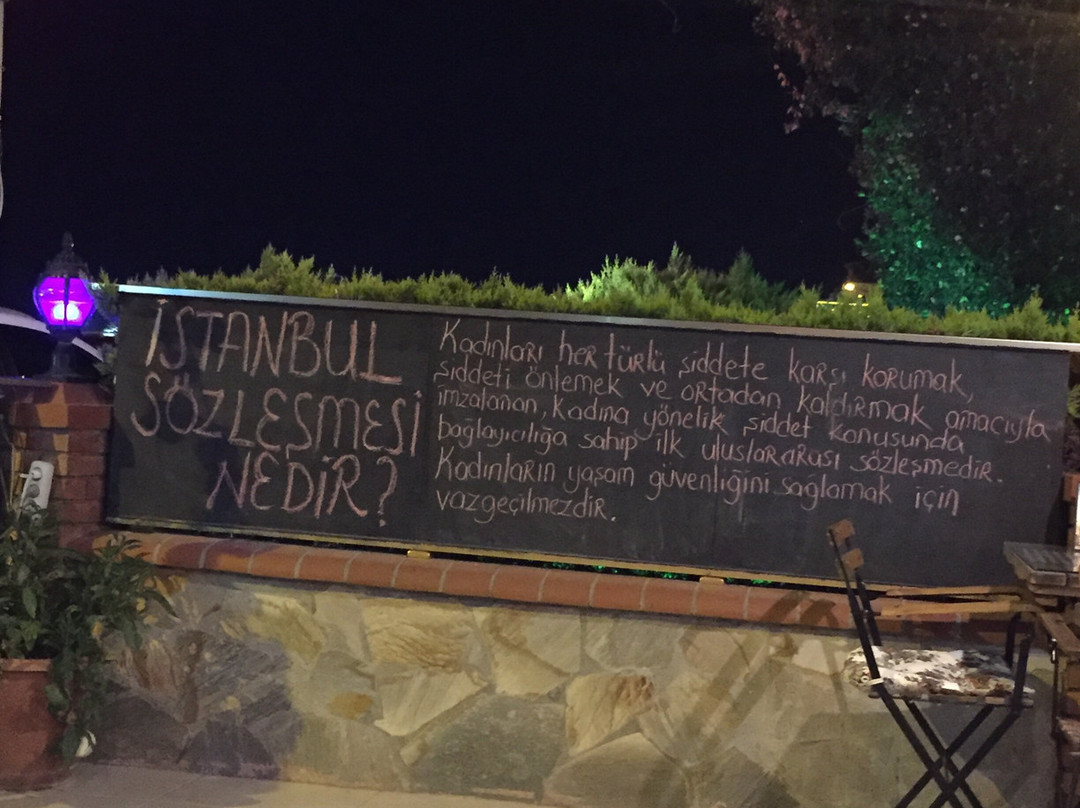 İSTANBUL
SÖZLEŞMESİ
NEDİR?
Kadınları her türlü şiddete karşı korumak,
şiddeti önlemek ve ortadan kaldırmak amacıyla
imzalanan, kadına yönelik şiddet konusunda
bağlayıcılığa sahip ilk uluslararası sözleşmedir.
Kadınların yaşam güvenliğini sağlamak için
vazgeçilmezdir.